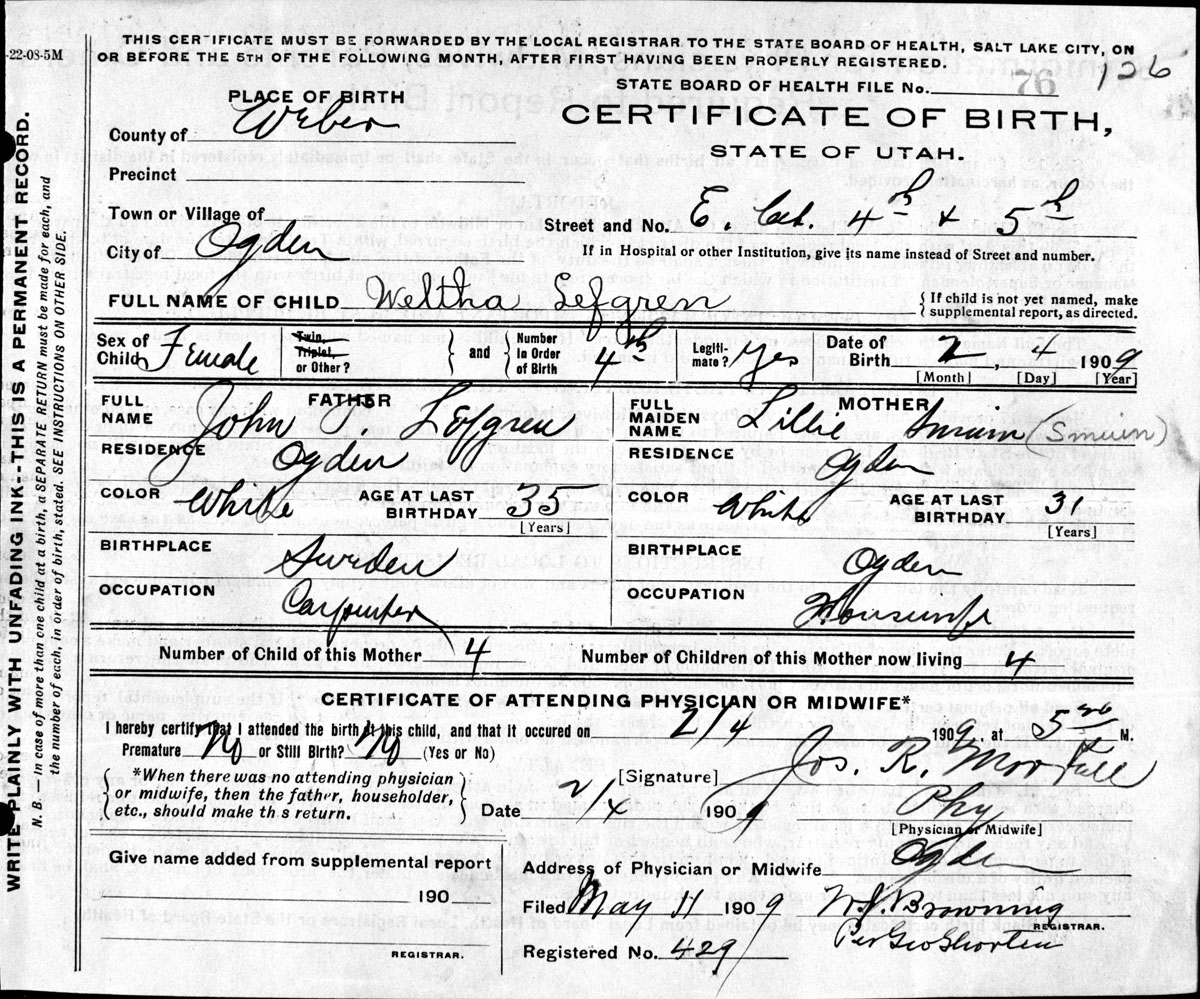 -22-08-5M
THIS CERTIFICATE MUST BE FORWARDED BY THE LOCAL REGISTRAR TO THE STATE BOARD OF HEALTH, SALT LAKE CITY, ON
OR BEFORE THE 5TH OF THE FOLLOWING MONTH, AFTER FIRST HAVING BEEN PROPERLY REGISTERED.
STATE BOARD OF HEALTH FILE No. 76 126
PLACE OF BIRTH
CERTIFICATE OF BIRTH,
STATE OF UTAH.
County of Weber
Precinct
Town or Village of
Street and No. E. bet. 4th + 5th
City of Ogden
[If in Hospital or other Institution, give its name instead of Street and number.
FULL NAME OF CHILD Weltha Lefgren
{If child is not yet named, make supplemental report, as directed.
Sex of Child Female Twin, Triplet, or Other? and Number in Order of Birth 4th Legitimate? Yes Date of Birth 2, 4 1909
[Month] [Day] [Year]
FATHER
FULL NAME John Lofgren
RESIDENCE Ogden
COLOR White AGE AT LAST BIRTHDAY 35
[Years]
BIRTHPLACE Sweden
OCCUPATION Carpenter
MOTHER
FULL MAIDEN NAME Lillie (Smuin)
RESIDENCE Ogden
COLOR White AGE AT LAST BIRTHDAY 31
[Years]
BIRTHPLACE Ogden
OCCUPATION Housewife
Number of Child of this Mother 4 Number of Children of this Mother now living 4
CERTIFICATE OF ATTENDING PHYSICIAN OR MIDWIFE*
I hereby certify that I attended the birth of this child, and that it occured on 2/4 1909, at 5 M.
Premature No or Still Birth? No (Yes or No)
*When there was no attending physician
or midwife, then the father, householder,
etc., should make this return.
[Signature] Jos. R. Morrell
Date 2/4 1909 Phy
[Physician or Midwife]
Give name added from supplemental report
190
REGISTRAR.
Address of Physician or Midwife Ogden
Filed May 11 1909 N.J. Browning
REGISTRAR.
Per Geo Shorten
Registered No. 429
WRITE PLAINLY WITH UNFADING INK-THIS IS A PERMANENT RECORD.
N. B. — In case of more than one child at a birth, a SEPARATE RETURN must be made for each, and
the number of each, in order of birth, stated. SEE INSTRUCTIONS ON OTHER SIDE.